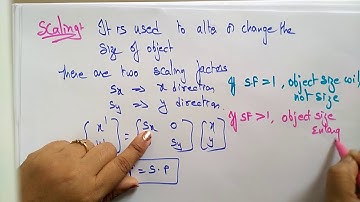 Scaling:- It is used to alter or change the
Size of object
There are two scaling factors
Sx => x direction
Sy => y direction.
If SF=1, object size will
not size
If SF>1, object size
Enlarg
[x'] = [Sx 0] [x]
[Sy] [y]
= S.P